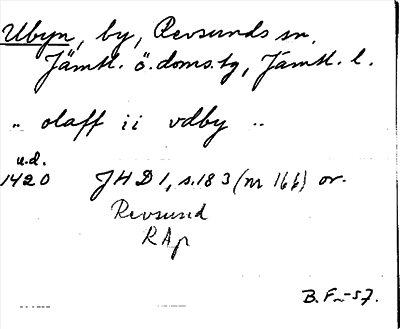 Ubyn, by, Revsunds sn,
Jämtl. ö. doms. tg, Jämtl. l.
.. olaff i i vdby ..
u.d.
1420 JHD 1, s. 183 (nr 166) or.
Revsund
RAp
B. F-57.